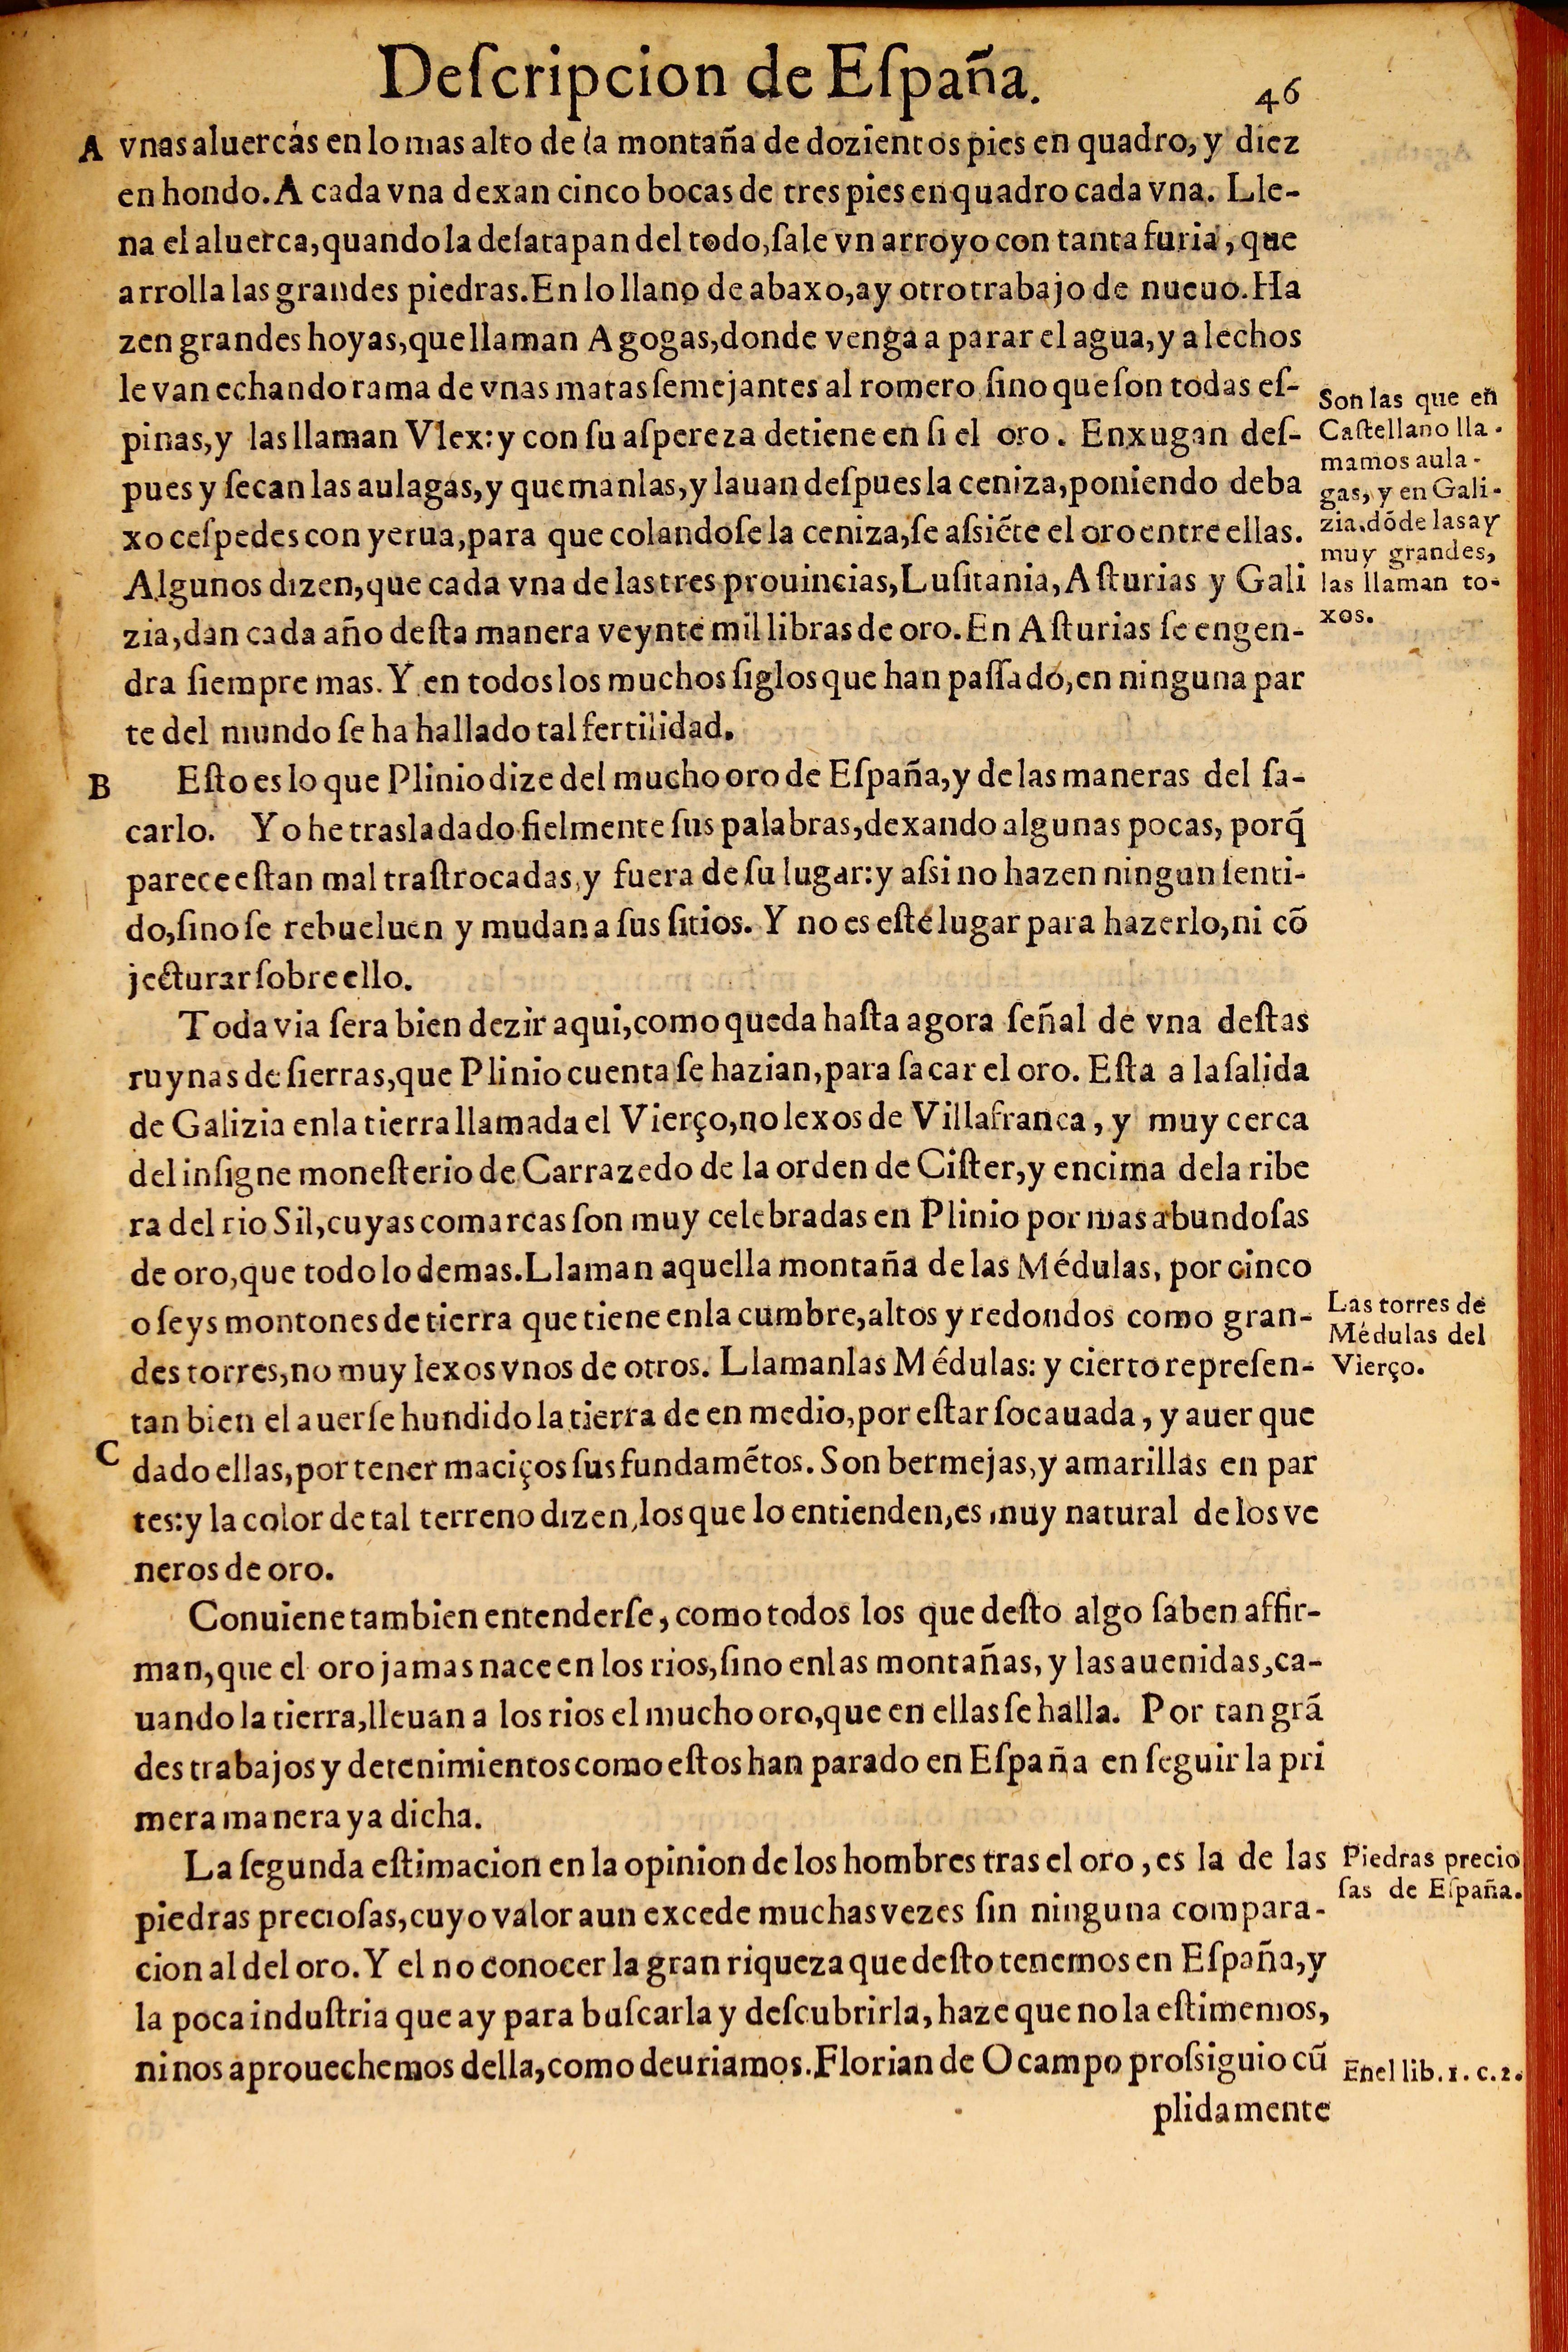 Deſcripcion de Eſpaña.
46
A vnas aluercás en lo mas alto de la montaña de dozientos pies en quadro, y diez
en hondo. A cada vna dexan cinco bocas de tres pies en quadro cada vna. Lle-
na el aluerca, quando la deſatapan del todo, ſale vn arroyo con tanta furia, que
arrolla las grandes piedras. En lo llano de abaxo, ay otro trabajo de nueuo. Ha
zen grandes hoyas, que llaman Agogas, donde venga a parar el agua, y a lechos
le van echando rama de vnas matas ſemejantes al romero ſino que ſon todas eſ-
pinas, y las llaman Vlex: y con ſu aſpereza detiene en ſi el oro. Enxugan deſ-
pues y ſecan las aulagas, y quemanlas, y lauan deſpues la ceniza, poniendo deba
xo ceſpedes con yerua, para que colandoſe la ceniza, ſe aſsiẽte el oro entre ellas.
Algunos dizen, que cada vna de las tres prouincias, Luſitania, Aſturias y Gali
zia, dan cada año deſta manera veynte mil libras de oro. En Aſturias ſe engen-
dra ſiempre mas. Y en todos los muchos ſiglos que han paſſado, en ninguna par
te del mundo ſe ha hallado tal fertilidad.
Son las que en
Caſtellano lla-
mamos aula-
gas, y en Gali-
zia. dõde las ay
muy grandes,
las llaman to-
xos.
B Eſto es lo que Plinio dize del mucho oro de Eſpaña, y de las maneras del ſa-
carlo. Yo he trasladado fielmente ſus palabras, dexando algunas pocas, porq̃
parece eſtan mal traſtrocadas, y fuera de ſu lugar: y aſsi no hazen ningun ſenti-
do, ſino ſe rebueluen y mudan a ſus ſitios. Y no es eſte lugar para hazerlo, ni cõ
jecturar ſobre ello.
Toda via ſera bien dezir aqui, como queda haſta agora ſeñal de vna deſtas
ruynas de ſierras, que Plinio cuenta ſe hazian, para ſacar el oro. Eſta a la ſalida
de Galizia en la tierra llamada el Vierço, no lexos de Villafranca, y muy cerca
del inſigne moneſterio de Carrazedo de la orden de Ciſter, y encima de la ribe
ra del rio Sil, cuyas comarcas ſon muy celebradas en Plinio por mas abundoſas
de oro, que todo lo demas. Llaman aquella montaña de las Médulas, por cinco
o ſeys montones de tierra que tiene en la cumbre, altos y redondos como gran-
des torres, no muy lexos vnos de otros. Llamanlas Médulas: y cierto repreſen-
tan bien el auerſe hundido la tierra de en medio, por eſtar ſocauada, y auer que
C dado ellas, por tener maciços ſus fundamẽtos. Son bermejas, y amarillas en par
tes: y la color de tal terreno dizen, los que lo entienden, es muy natural de los ve
neros de oro.
Las torres de
Médulas del
Vierço.
Conuiene tambien entenderſe, como todos los que deſto algo ſaben affir-
man, que el oro jamas nace en los rios, ſino en las montañas, y las auenidas, ca-
uando la tierra, lleuan a los rios el mucho oro, que en ellas ſe halla. Por tan grã
des trabajos y detenimientos como eſtos han parado en Eſpaña en ſeguir la pri
mera manera ya dicha.
La ſegunda eſtimacion en la opinion de los hombres tras el oro, es la de las
piedras precioſas, cuyo valor aun excede muchas vezes ſin ninguna compara-
cion al del oro. Y el no conocer la gran riqueza que deſto tenemos en Eſpaña, y
la poca induſtria que ay para buſcarla y deſcubrirla, haze que no la eſtimemos,
ni nos aprouechemos della, como deuriamos. Florian de Ocampo proſsiguio cũ
Piedras precio
ſas de Eſpaña.
En el lib. 1. c. 2.
plidamente